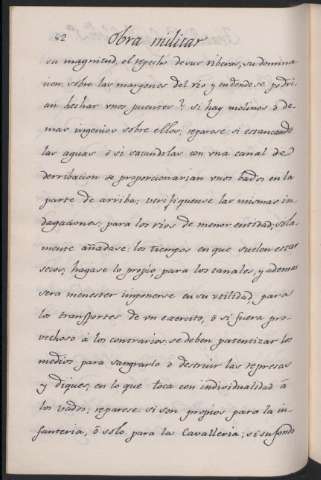 82 Obra militar
su magnitud, el respecto de sus riberas, su domina
cion, sobre las margenes del rio y endonde se podri
an hechar unos puentes? si hay molinos ò de
mas ingenios sobre ellos, reparese si estancando
las aguas ò si sacandolas con una canal de
derribacion se proporcionarian unos bados en la
parte de arriba; verifiquense las mismas in
dagaciones, para los rios de menor entidad; sola
mente añadase: los tiempos en que suelen estar
secos, hagase lo propio para los canales, y ademas
sera menester imponerse en su utilidad, para
los transportes de un exercito, ò si fuera pro
vechoso à los contrarios, se deben patentizar los
medios para sangrarlo ò destruir las represas
y diques, en lo que toca con individualidad à
los vados; reparese si son propios para la in
fanteria, ò solo para la Cavalleria; si su fondo